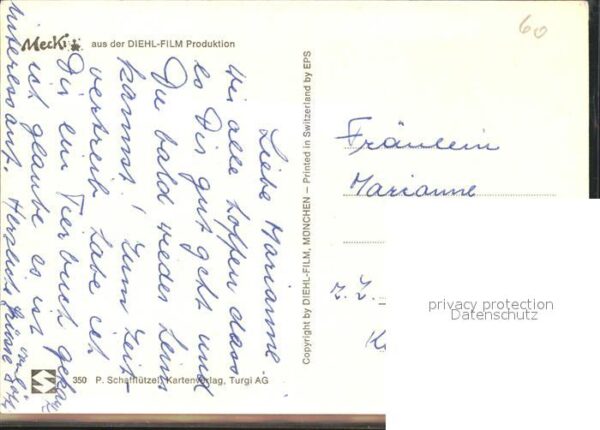 Mecki aus der DIEHL-FILM Produktion
60
Liebe Marianne
Wir alle hoffen dass
es Dir gut geht und
Du bald wieder heim
kannst! Zum Zeit-
vertreib habe ich
Dir ein Tierbuch gekauft
ich glaube es ist
interessant. Herzliche Grüsse
350 P. Schafflützel, Kartenverlag, Turgi AG
Copyright by DIEHL-FILM, MÜNCHEN – Printed in Switzerland by EPS
Fräulein
Marianne
z. Z.
privacy protection
Datenschutz